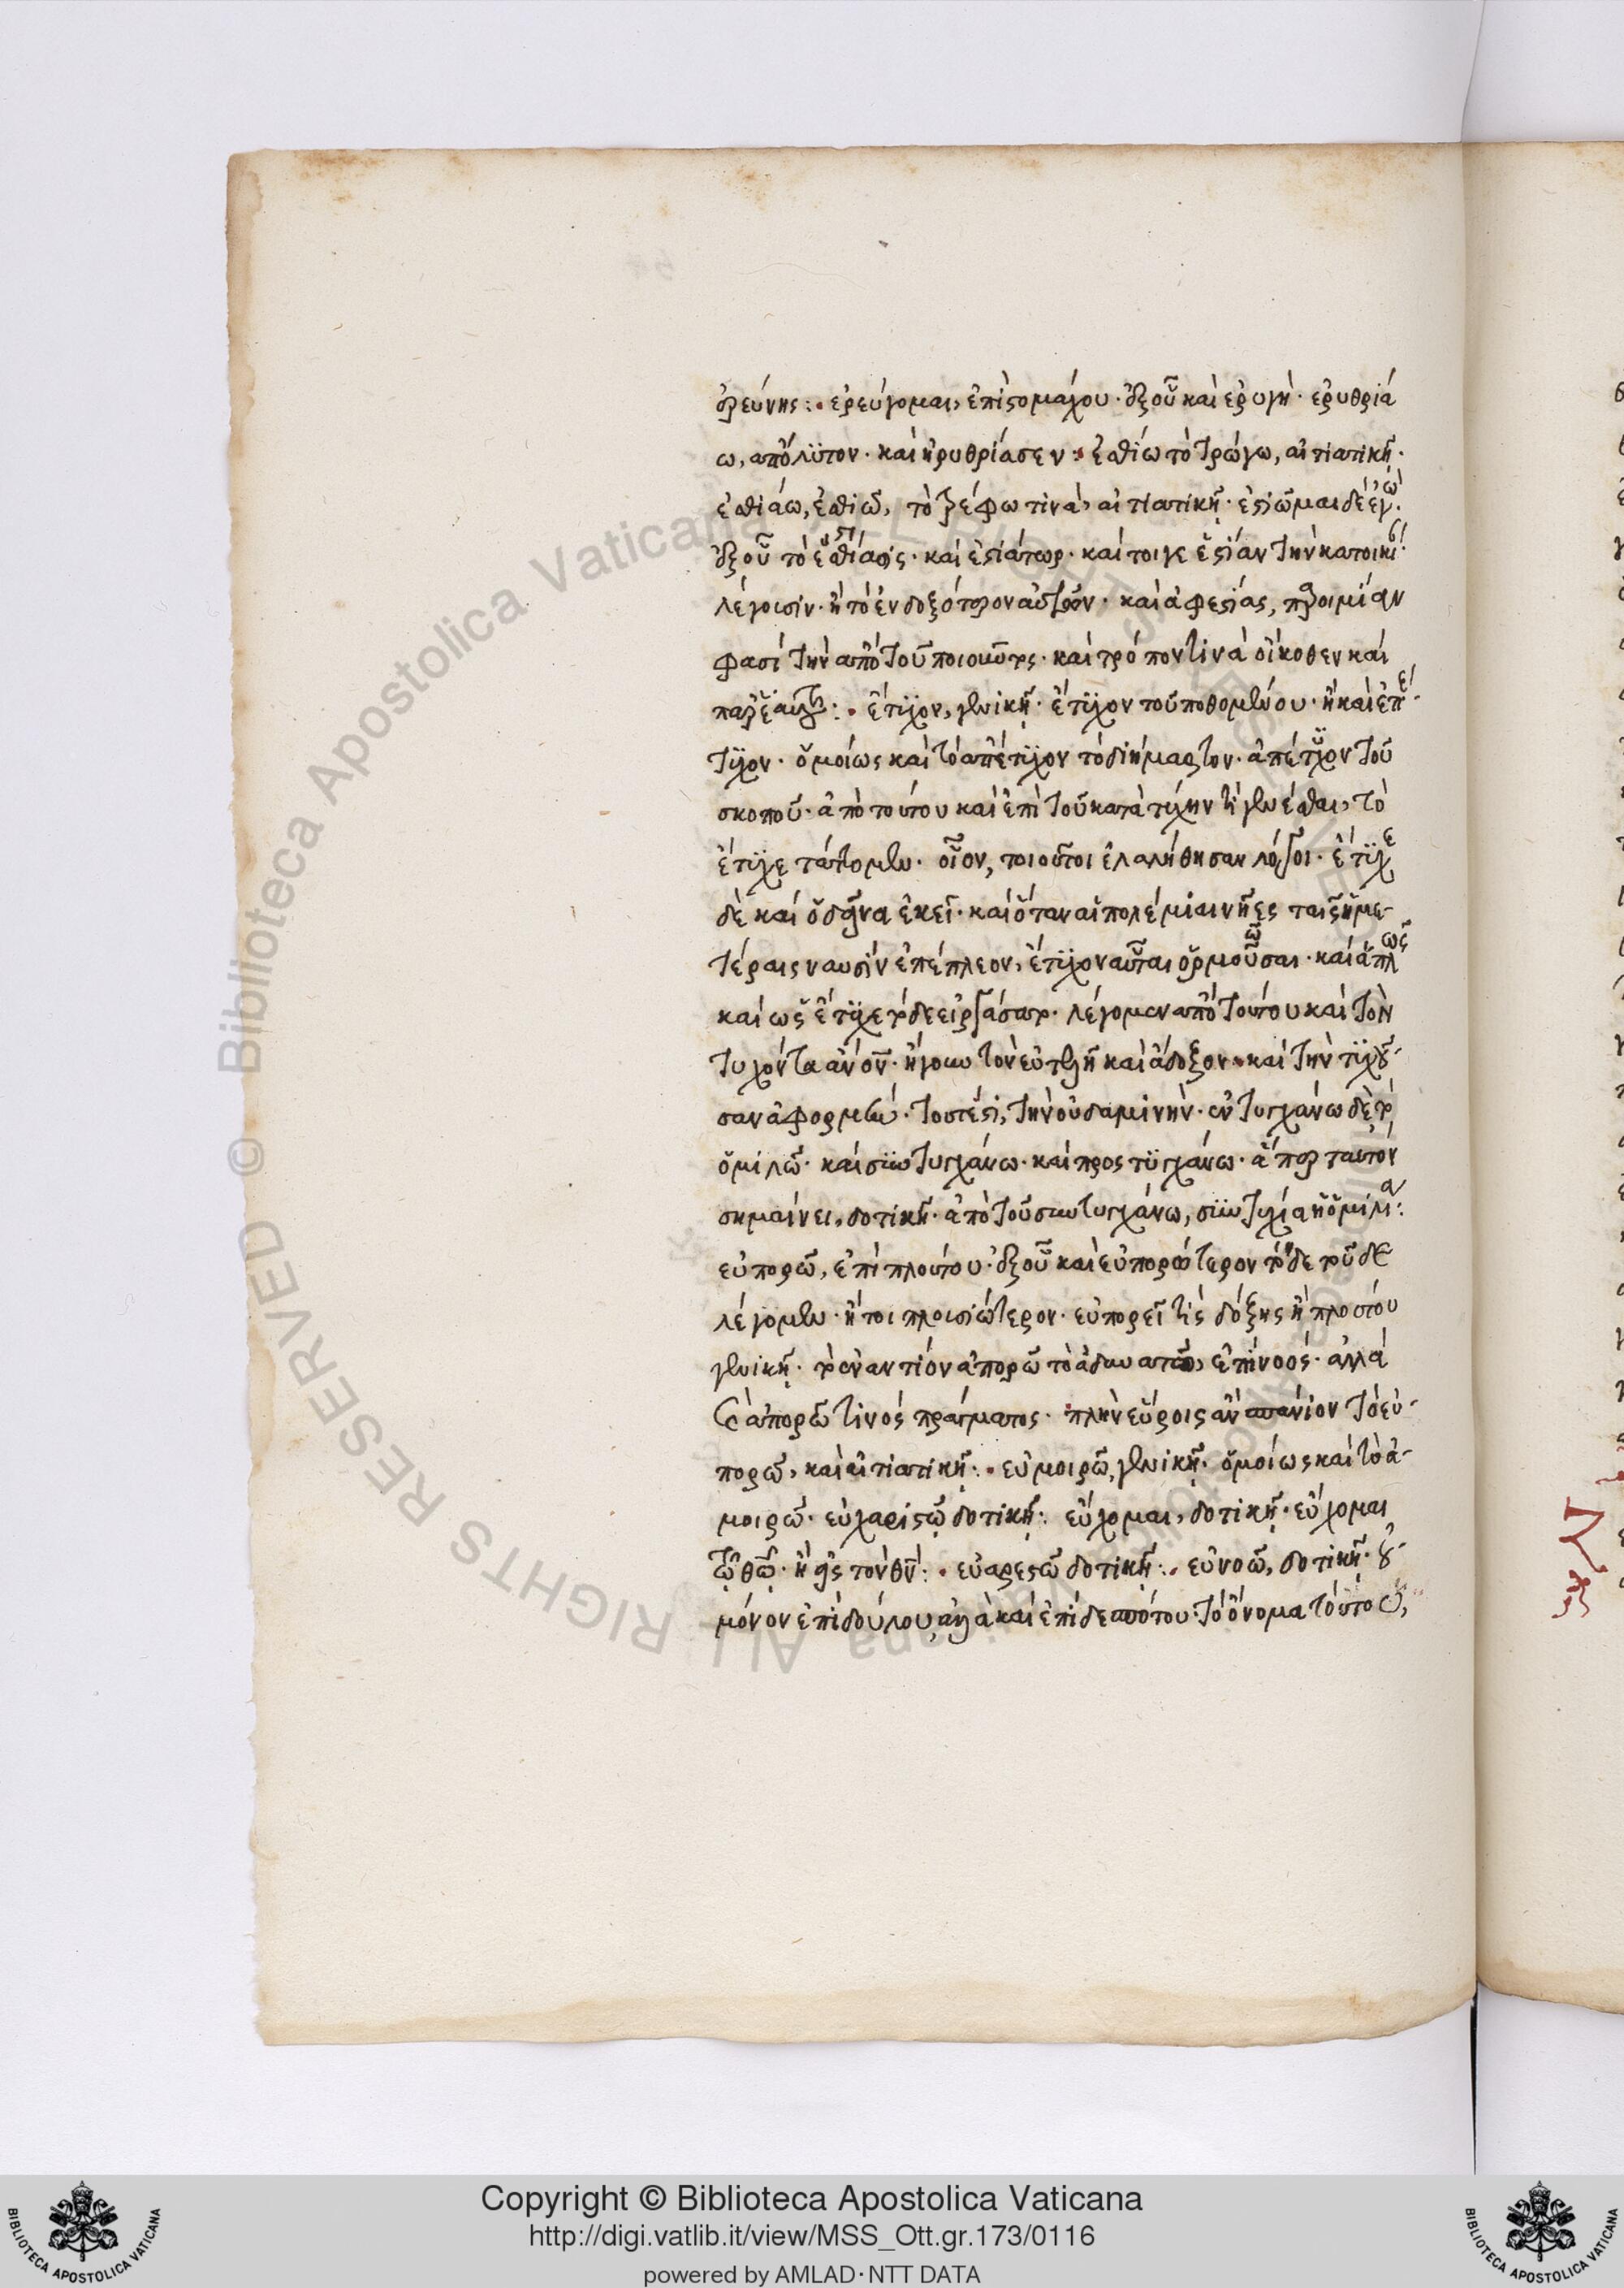 ἐρεύνης:. ἐρεύγομαι, ἐπὶ στομάχου· ἐξ οὗ καὶ ἐρυγή· ἐρυθριά
ω, ἀπόλυτον· καὶ ἠρυθρίασεν:. ἐσθίω τὸ τρώγω, αἰτιατικῇ·
ἐσθιάω, ἐσθιῶ, τὸ τρέφω τινά, αἰτιατικῇ· ἑστιῶμαι δὲ ἐγώ·
ἐξ οὗ τὸ ἑσθίασις· καὶ ἑστιάτωρ· καίτοιγε ἑστίαν τὴν κατοικί
λέγουσιν· ἢ τὸ ἐνδοξότερον αὐτῶν· καὶ ἀφεστίας, παροιμίαν
φασὶ τὴν ἀπὸ τοῦ ποιοῦντος· καὶ τρόπον τινὰ οἴκοθεν καὶ
παρ' ἑαυτοῦ:. ἔτυχον, γενικῇ· ἔτυχον τοῦ ποθουμένου· ἢ καὶ ἐπέ-
τυχον· ὁμοίως καὶ τὸ ἀπέτυχον τὸ διήμαρτον· ἀπέτυχον τοῦ
σκοποῦ· ἀπὸ τούτου καὶ ἐπὶ τοῦ κατὰ τύχην τι γενέσθαι, τὸ
ἔτυχε τάττομεν· οἷον, τοιοῦτοι ἐλαλήθησαν λόγοι· ἔτυχε
δὲ καὶ ὁ δεῖνα ἐκεῖ· καὶ ὅταν αἱ πολέμιαι νῆες ταῖς ἡμε-
τέραις ναυσὶν ἐπέπλεον, ἔτυχον αὗται ὁρμοῦσαι· καὶ ἁπλῶς
καὶ ὡς ἔτυχε τόδε εἰργάσατο· λέγομεν ἀπὸ τούτου καὶ τὸν
τυχόντα ἄνον· ἤγουν τὸν εὐτελῆ καὶ ἄδοξον· καὶ τὴν τυχοῦ-
σαν ἀφορμήν· τουτέστι, τὴν οὐδαμινήν· ἐντυγχάνω δὲ τὸ
ὁμιλῶ· καὶ συντυγχάνω· καὶ προστυγχάνω· ἅπερ ταυτὸν
σημαίνει, δοτικῇ· ἀπὸ τοῦ συντυγχάνω, συντυχία ἡ ὁμιλία:
εὐπορῶ, ἐπὶ πλούτου· ἐξ οὗ καὶ εὐπορώτερον τόνδε τοῦδε
λέγομεν· ἤτοι πλουσιώτερον· εὐπορεῖ τις δόξης ἢ πλούτου
γενικῇ· τὸ ἐναντίον ἀπορῶ τὸ ἀδυνατῶ, ἐπὶ νοός· ἀλλὰ
καὶ ἀπορῶ τινὸς πράγματος· πλὴν εὕροις ἂν σπάνιον τὸ εὐ-
πορῶ, καὶ αἰτιατικῇ:. εὐμοιρῶ, γενικῇ· ὁμοίως καὶ τὸ ἀ-
μοιρῶ· εὐχαριστῶ δοτικῇ:. εὔχομαι, δοτικῇ· εὔχομαι
τῷ θῶ· ἢ εἰς τὸν θν:. εὐαρεστῶ δοτικῇ:. εὐνοῶ, δοτικῇ· οὐ
μόνον ἐπὶ δούλου, ἀλλὰ καὶ ἐπὶ δεσπότου· τὸ ὄνομα τούτου,
Copyright © Biblioteca Apostolica Vaticana
http://digi.vatlib.it/view/MSS_Ott.gr.173/0116
powered by AMLAD·NTT DATA